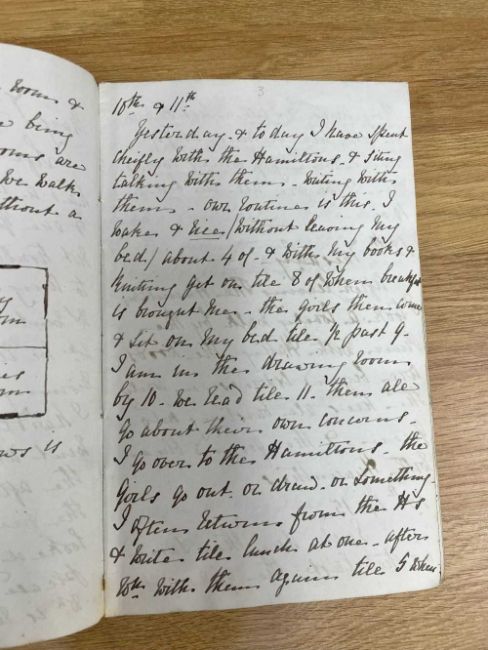 rooms &
being
oms are
We walk
ithout a
ws is
3
10th & 11th
Yesterday & to day I have spent
cheifly with the Hamiltons. & I sing
talking with them - writing with
them - our routine is this. I
wake & rise (without leaving my
bed) about 4 of - & with my books &
knitting get on tile 8 of when breakfast
is brought me - the girls then come
& sit on my bed tile ½ past 9 -
I am in the drawing room
by 10. We read tile 11. then all
go about their own concerns -
I go over to the Hamiltons - the
girls go out - or draw - or something -
I often return from the Hs
& write tile lunch at one - after
wh with them again tile 5 when